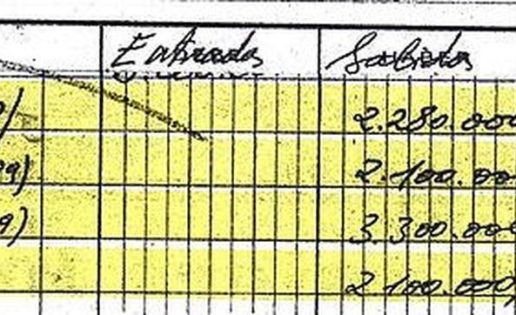 Entrada Salida
9) 2.280.000
99) 2.100.000
9) 3.300.000
2.100.000,